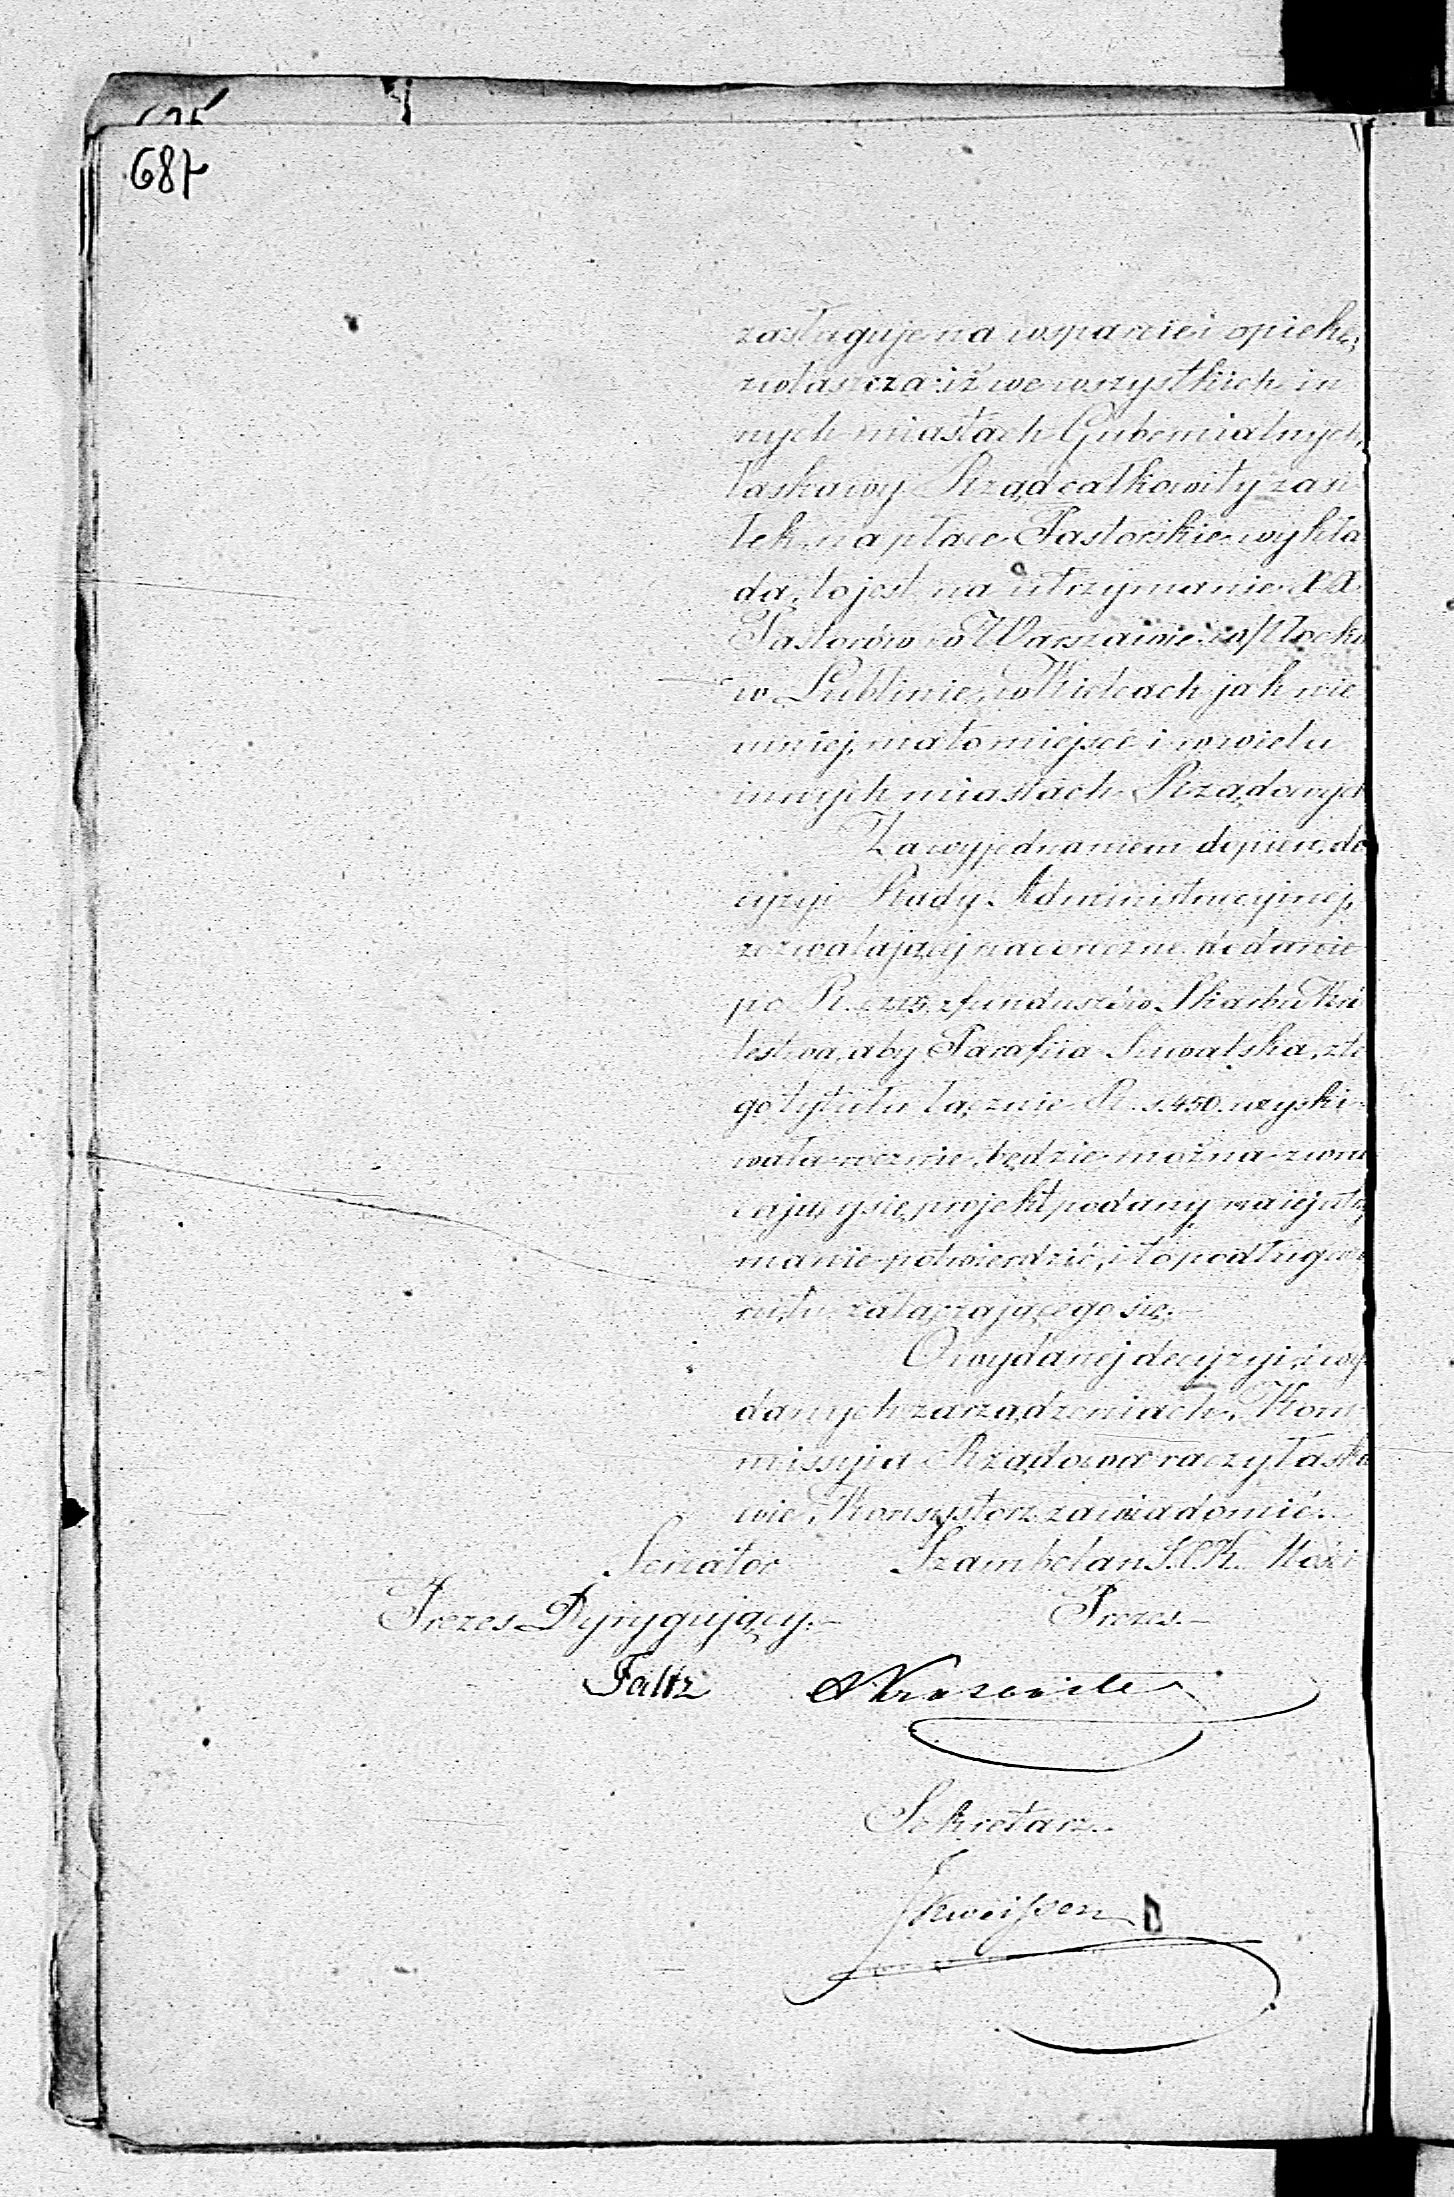 687
zasługuje na wsparcie i opiekę,
zwłaszcza iż we wszystkich in
nych miastach Gubernialnych,
łaskawy Rząd całkowity zasi
łek na płace Pastorskie wykła
da, to jest na utrzymanie XX.
Pastorów w Warszawie, w Płocku
w Lublinie, w Kielcach jak nie
mniej, ma to miejsce i w wielu
innych miastach Rządowych
Za wyjednaniem dopiero de
cyzyi Rady Administracyjnej,
zezwalającej na coroczne dodanie
po R. s. 225. z funduszów Skarbu Kró
lestwa, aby Parafiia Suwalska, z te
go tytułu łącznie R. s. 450. uzyski
wała rocznie, będzie można zwra
cający się projekt podany na jej utrzy
manie potwierdzić, i to podług
załączającego się.
O wydanej decyzyi, i wy
danych zarządzeniach, Kom
missyia Rządowa raczy łaska
wie, Konsystorz zawiadomić.
Senator Szambelan J. C. K. Mości
Prezes Dyrygujący. Prezes
Faltz
Sekretarz